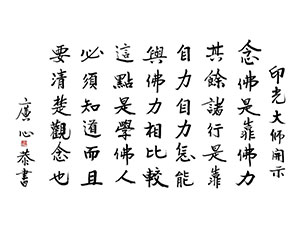 印光大師開示
念佛是靠佛力
其餘諸行是靠
自力自力怎能
與佛力相比較
這點是學佛人
必須知道而且
要清楚觀念也
廣心恭書